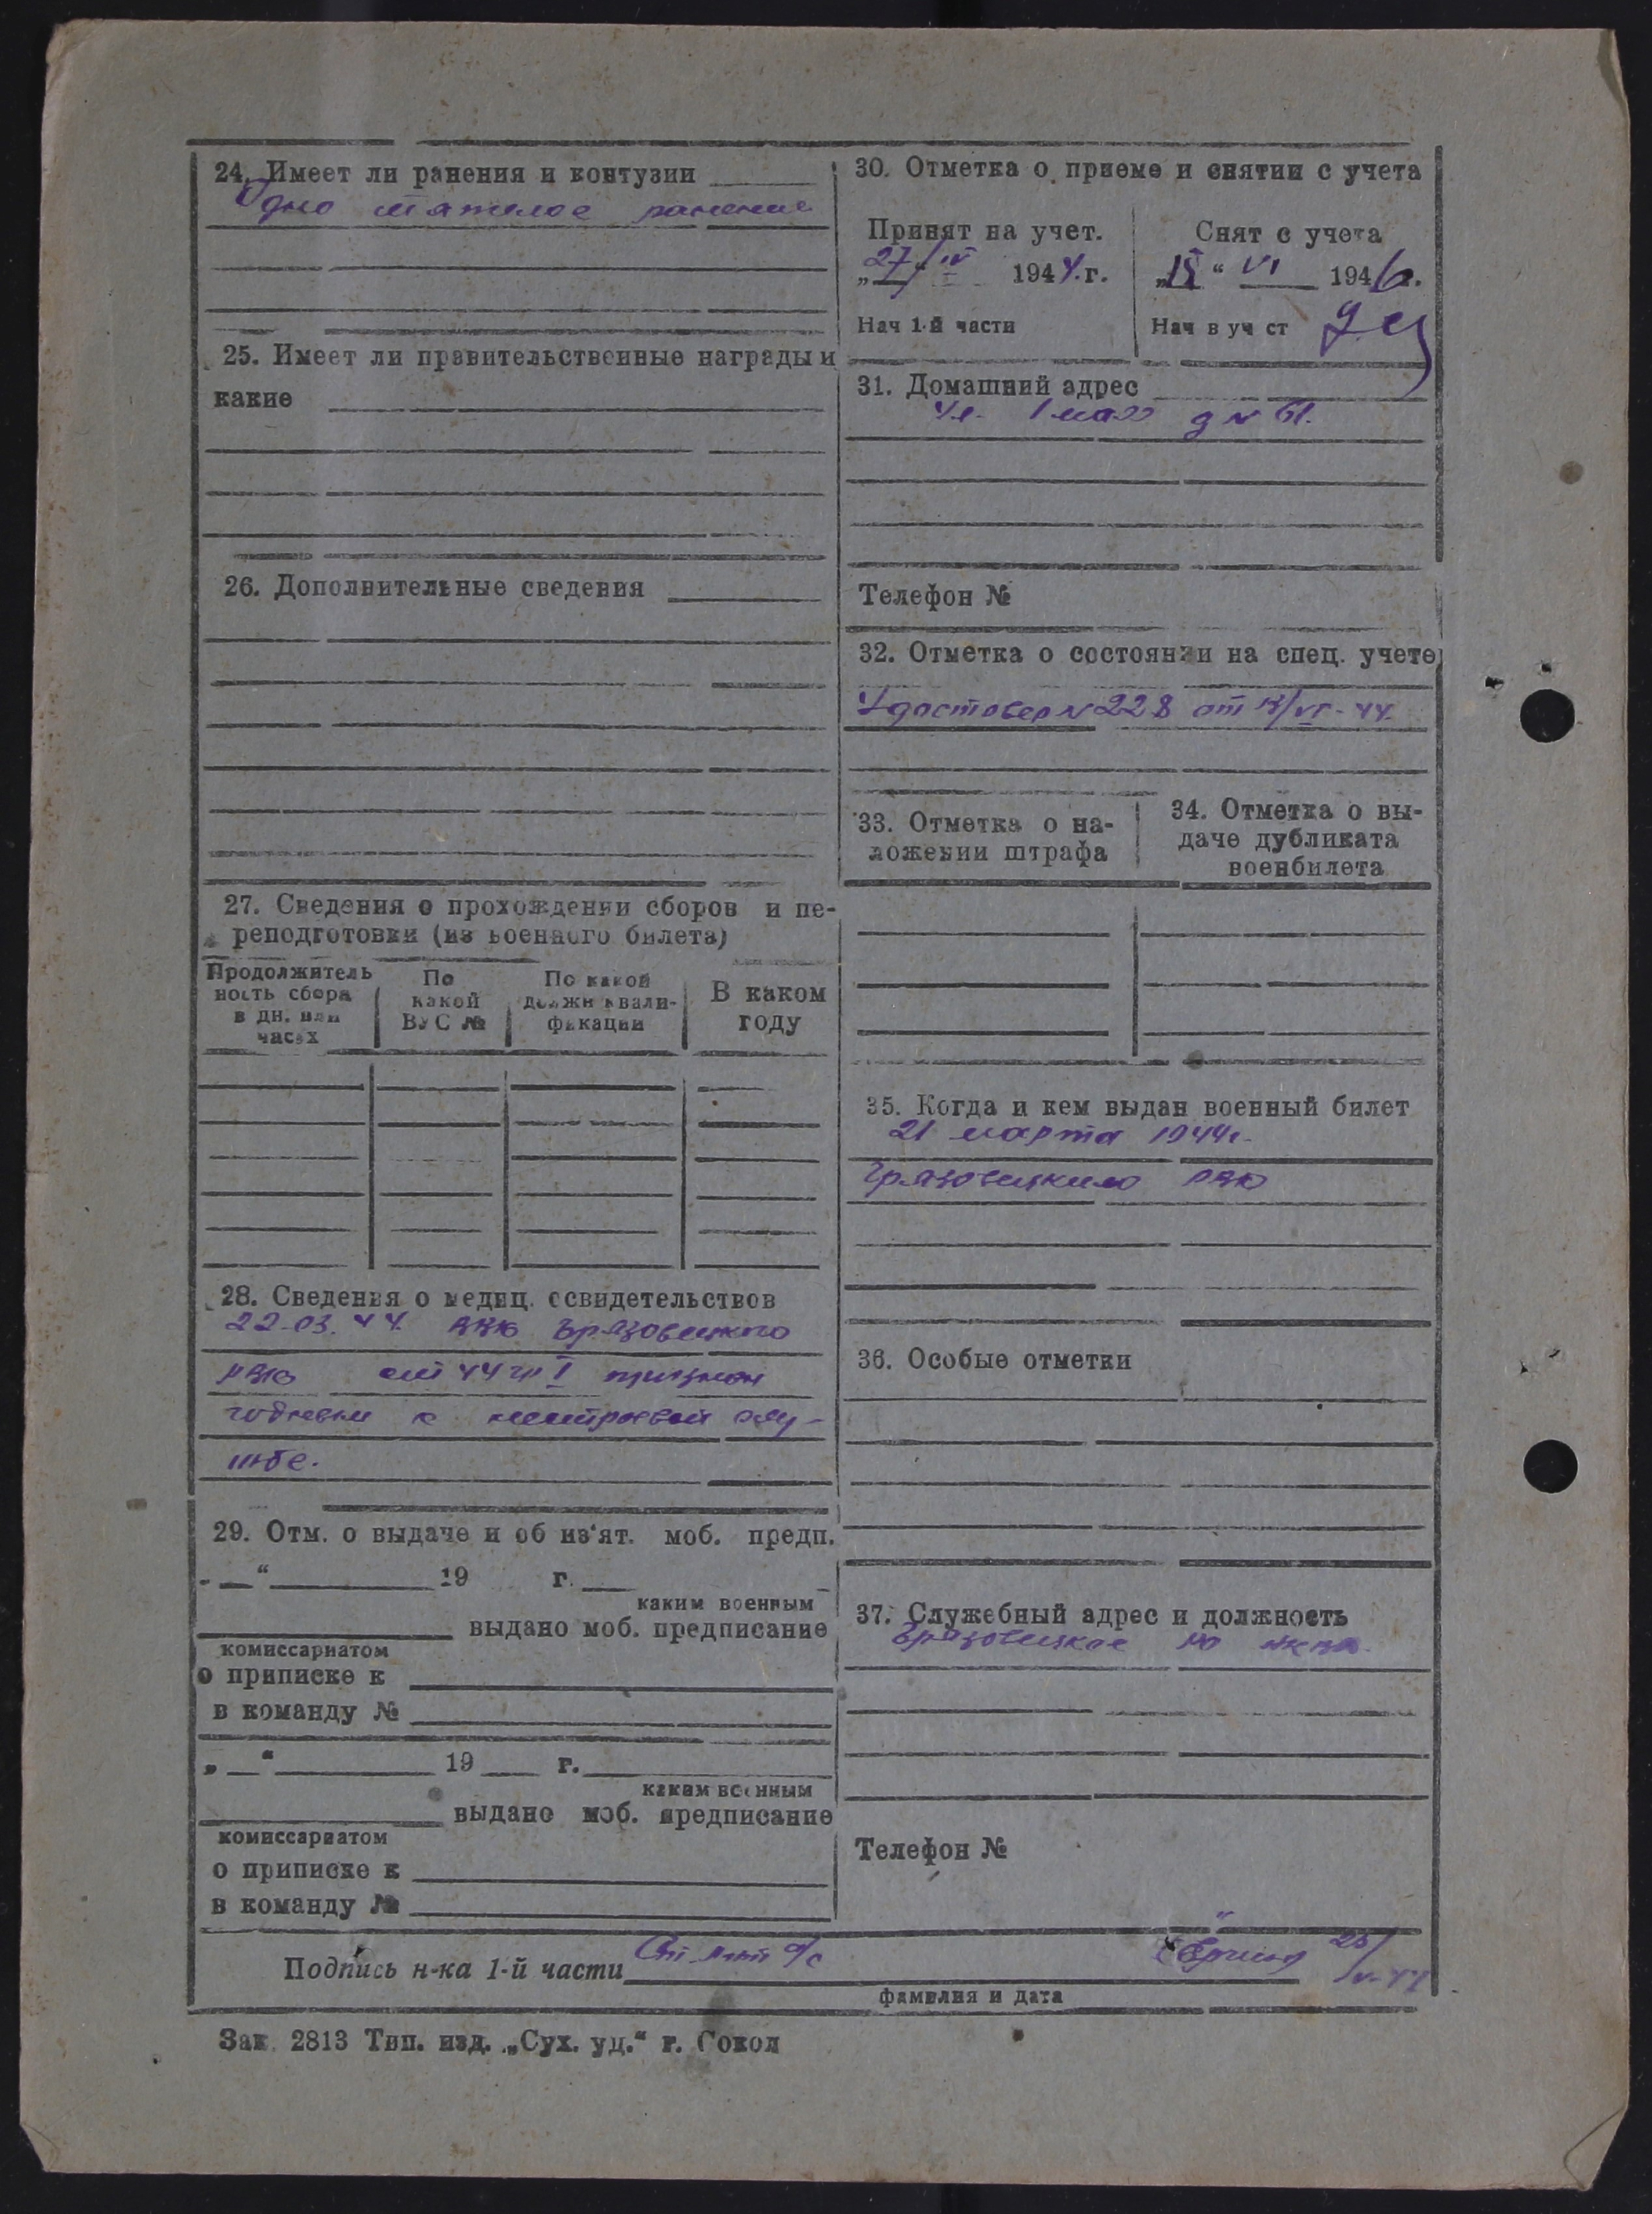 24. Имеет ли ранения и контузии
Одно тяжелое ранение
25. Имеет ли правительственные награды и
какие
26. Дополнительные сведения
27. Сведения о прохождении сборов и пе-
реподготовки (из военного билета)
Продолжитель
ность сбора
в дн. или
часах
По
какой
ВУС №
По какой
должн квали-
фикации
В каком
году
28. Сведения о медиц. освидетельствов
22.03.44. ВВК Грязовецкого
РВК 44 I признан
годным к нестроевой слу-
жбе.
29. Отм. о выдаче и об из'ят. моб. предп.
"19 г.
каким военным
выдано моб. предписание
комиссариатом
о приписке к
в команду №
„ " 19 г.
каким военным
выдано моб. предписание
комиссариатом
о приписке к
в команду №
30. Отметка о приеме и снятии с учета
Принят на учет.
„27/" IV 1944.г.
Нач 1-й части
Снят с учета
" VI 1946г.
Нач в уч ст
31. Домашний адрес
Ул. 1 мая д № 61.
Телефон №
32. Отметка о состоянии на спец. учете
Удостовер №228 от /VI-44.
33. Отметка о на-
ложении штрафа
34. Отметка о вы-
даче дубликата
военбилета
35. Когда и кем выдан военный билет
21 марта 1944г.
Грязовецким РВК
36. Особые отметки
37. Служебный адрес и должность
Грязовецкое РО НКВД
Телефон №
Подпись н-ка 1-й части Ст. л-нт а/с 25/V-44
фамилия и дата
Зак. 2813 Тип. изд. „Сух. уд." г. Сокол